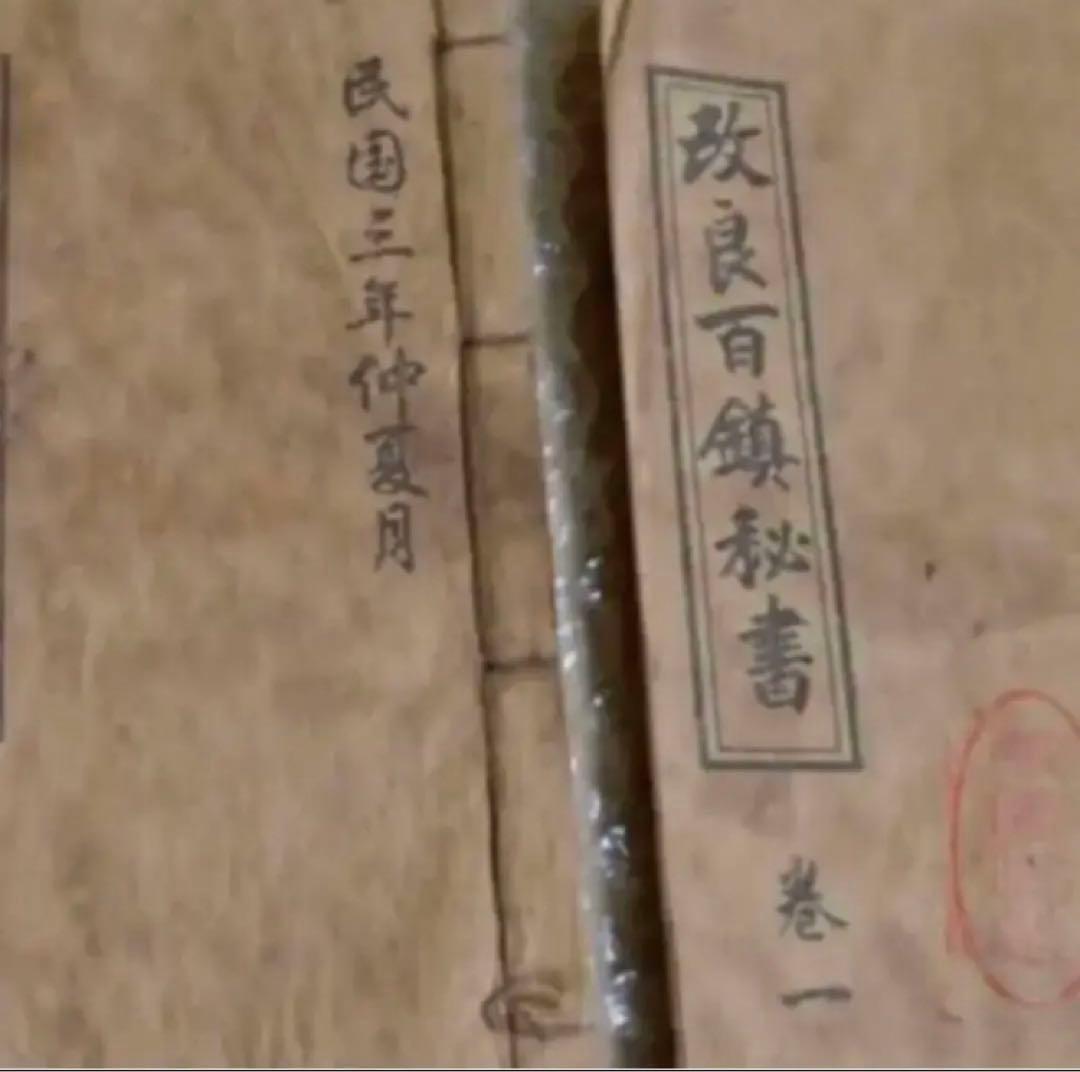 改良百鎮秘書
卷一
民国三年仲夏月